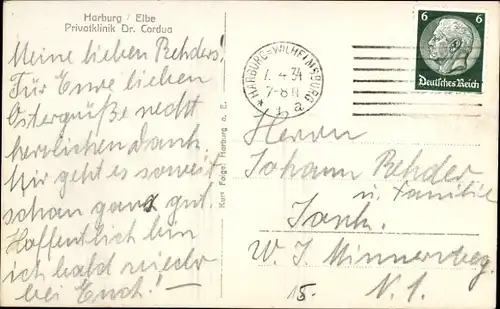 Harburg / Elbe
Privatklinik Dr. Cordua
Meine lieben Rehders!
Für Eure lieben
Ostergrüße recht
herzlichen Dank.
Mir geht es soweit
schon ganz gut.
Hoffentlich bin
ich bald wieder
bei Euch! —
Karl Folge, Harburg a. E.
HARBURG-WILHELMSBURG
7.4.34
7-8
* 1 a
6 6
Deutsches Reich
Herrn
Johann Rehder
u. Familie
Jork.
15.